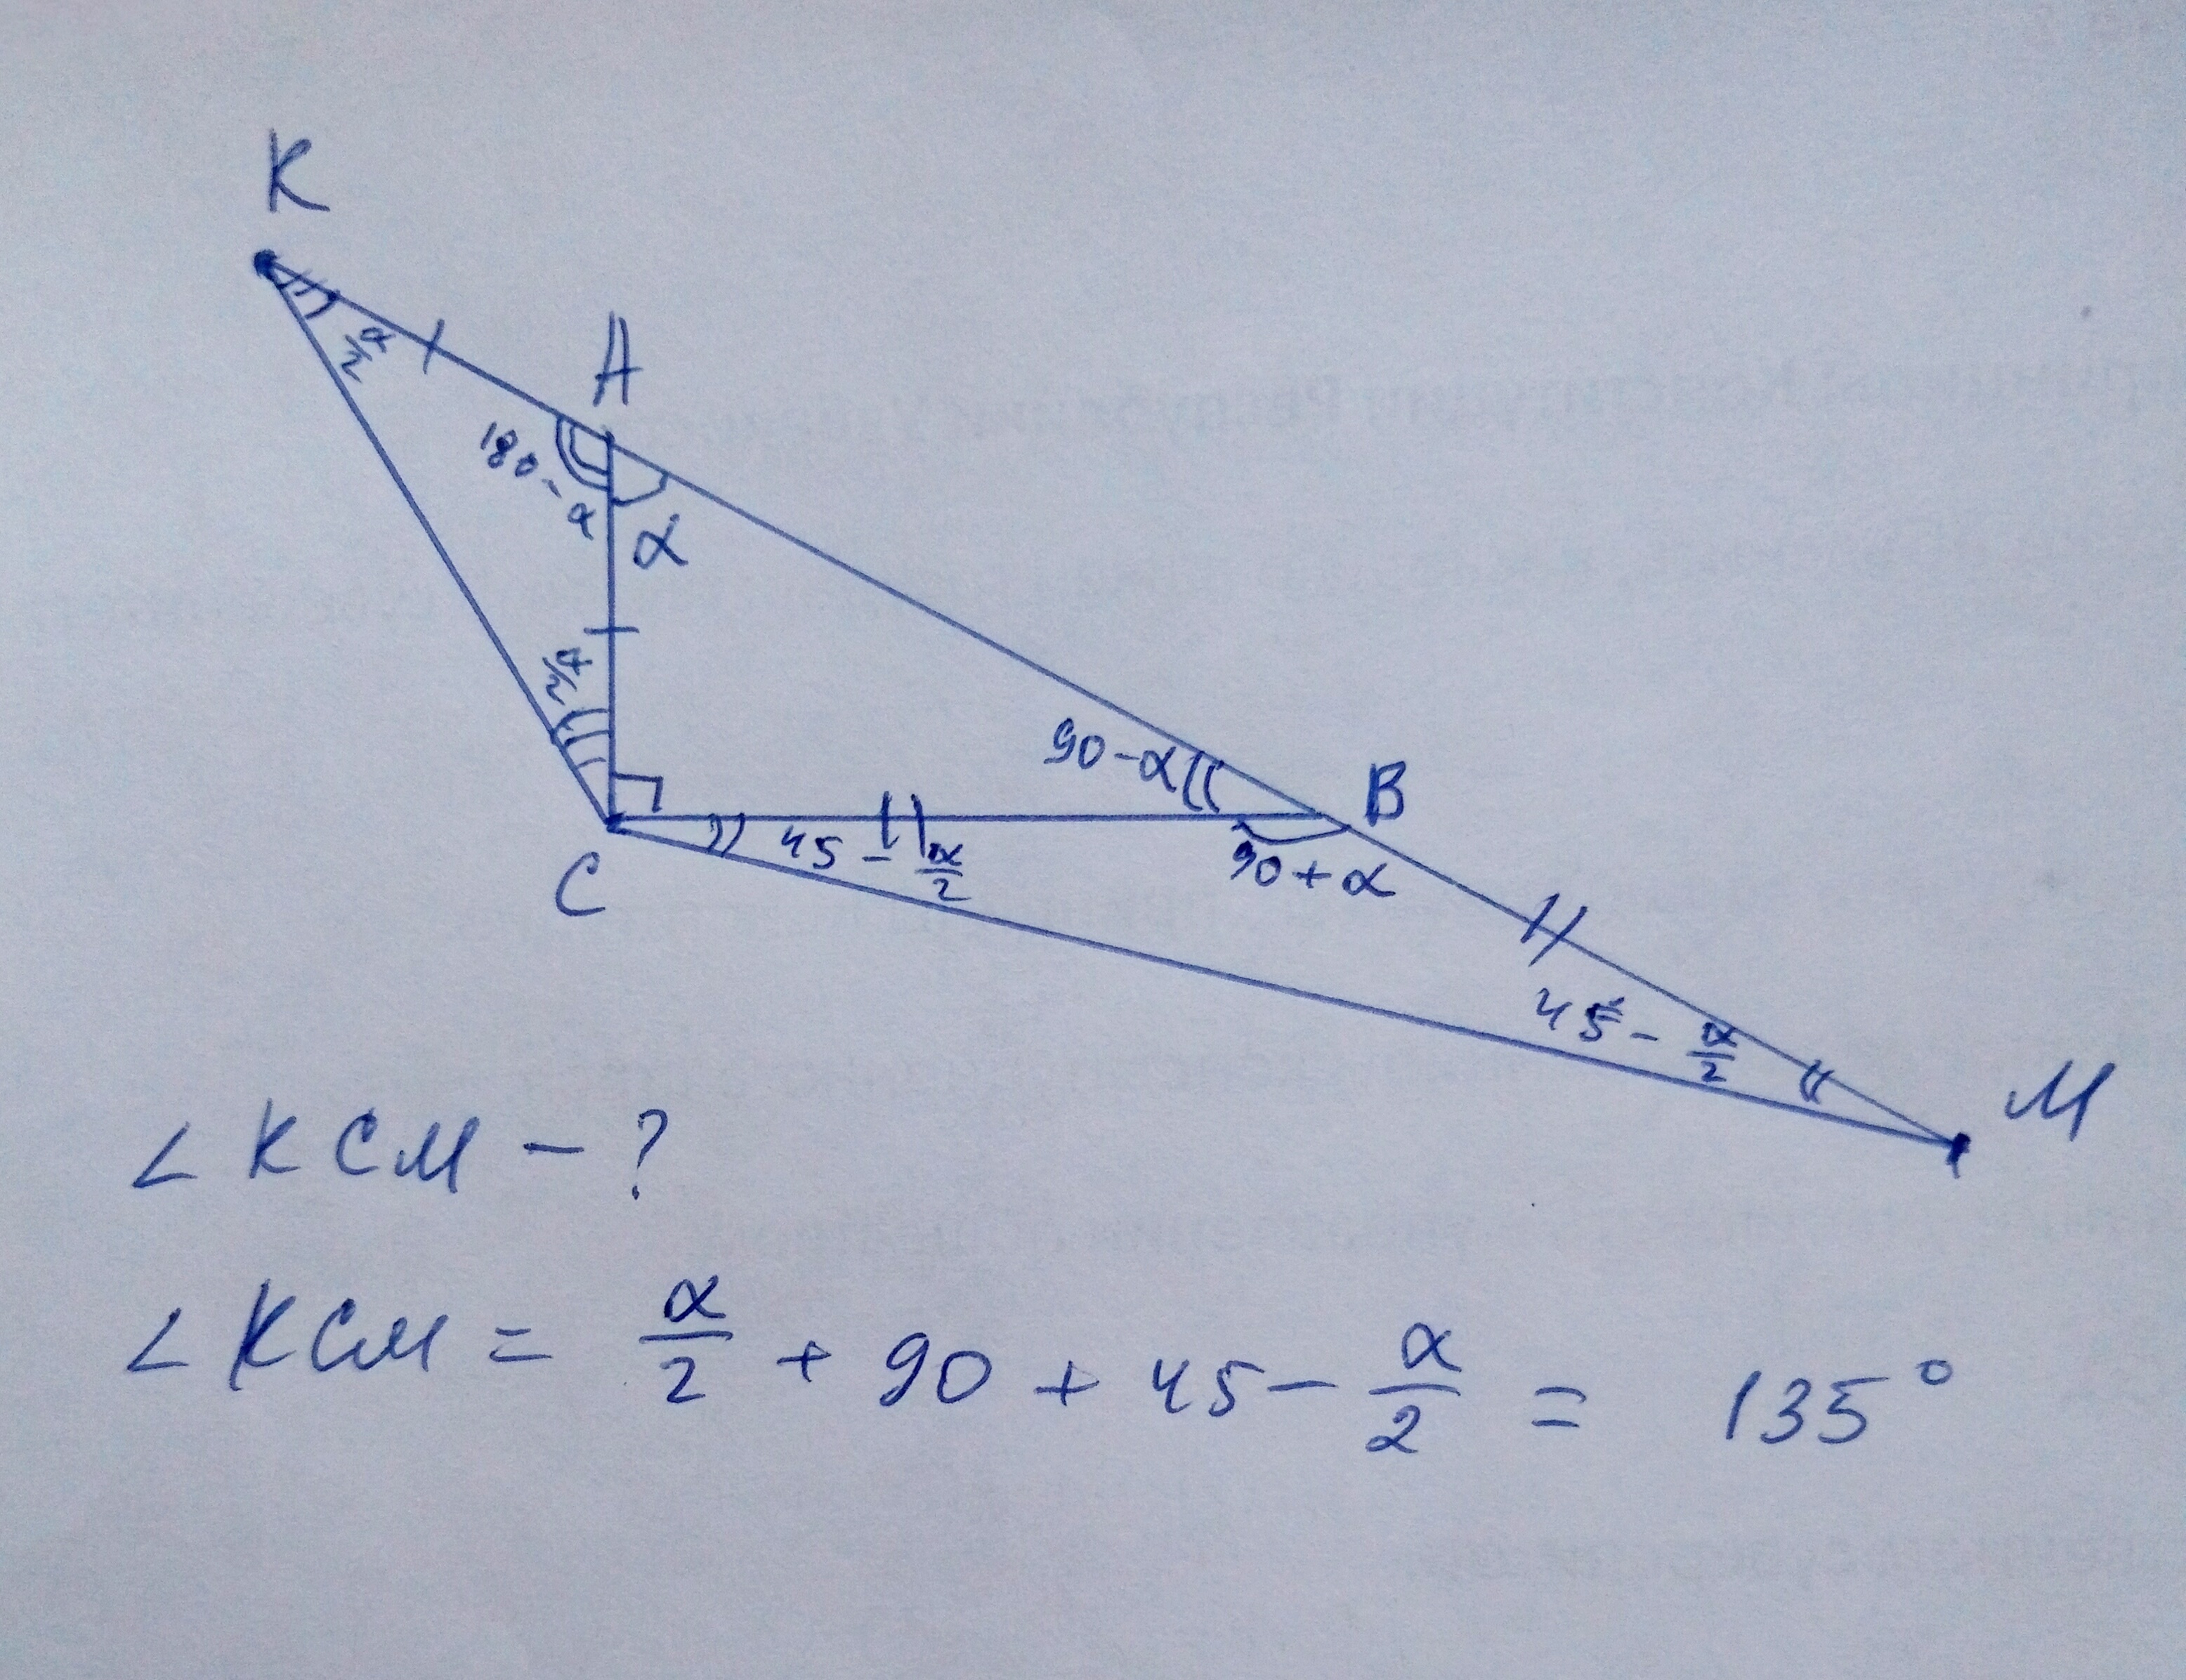 K
A
α/2
180-α
α
α/2
90-α
B
C
45-α/2
90+α
45-α/2
M
∠KCM-?
∠KCM = α/2 + 90 + 45 - α/2 = 135°